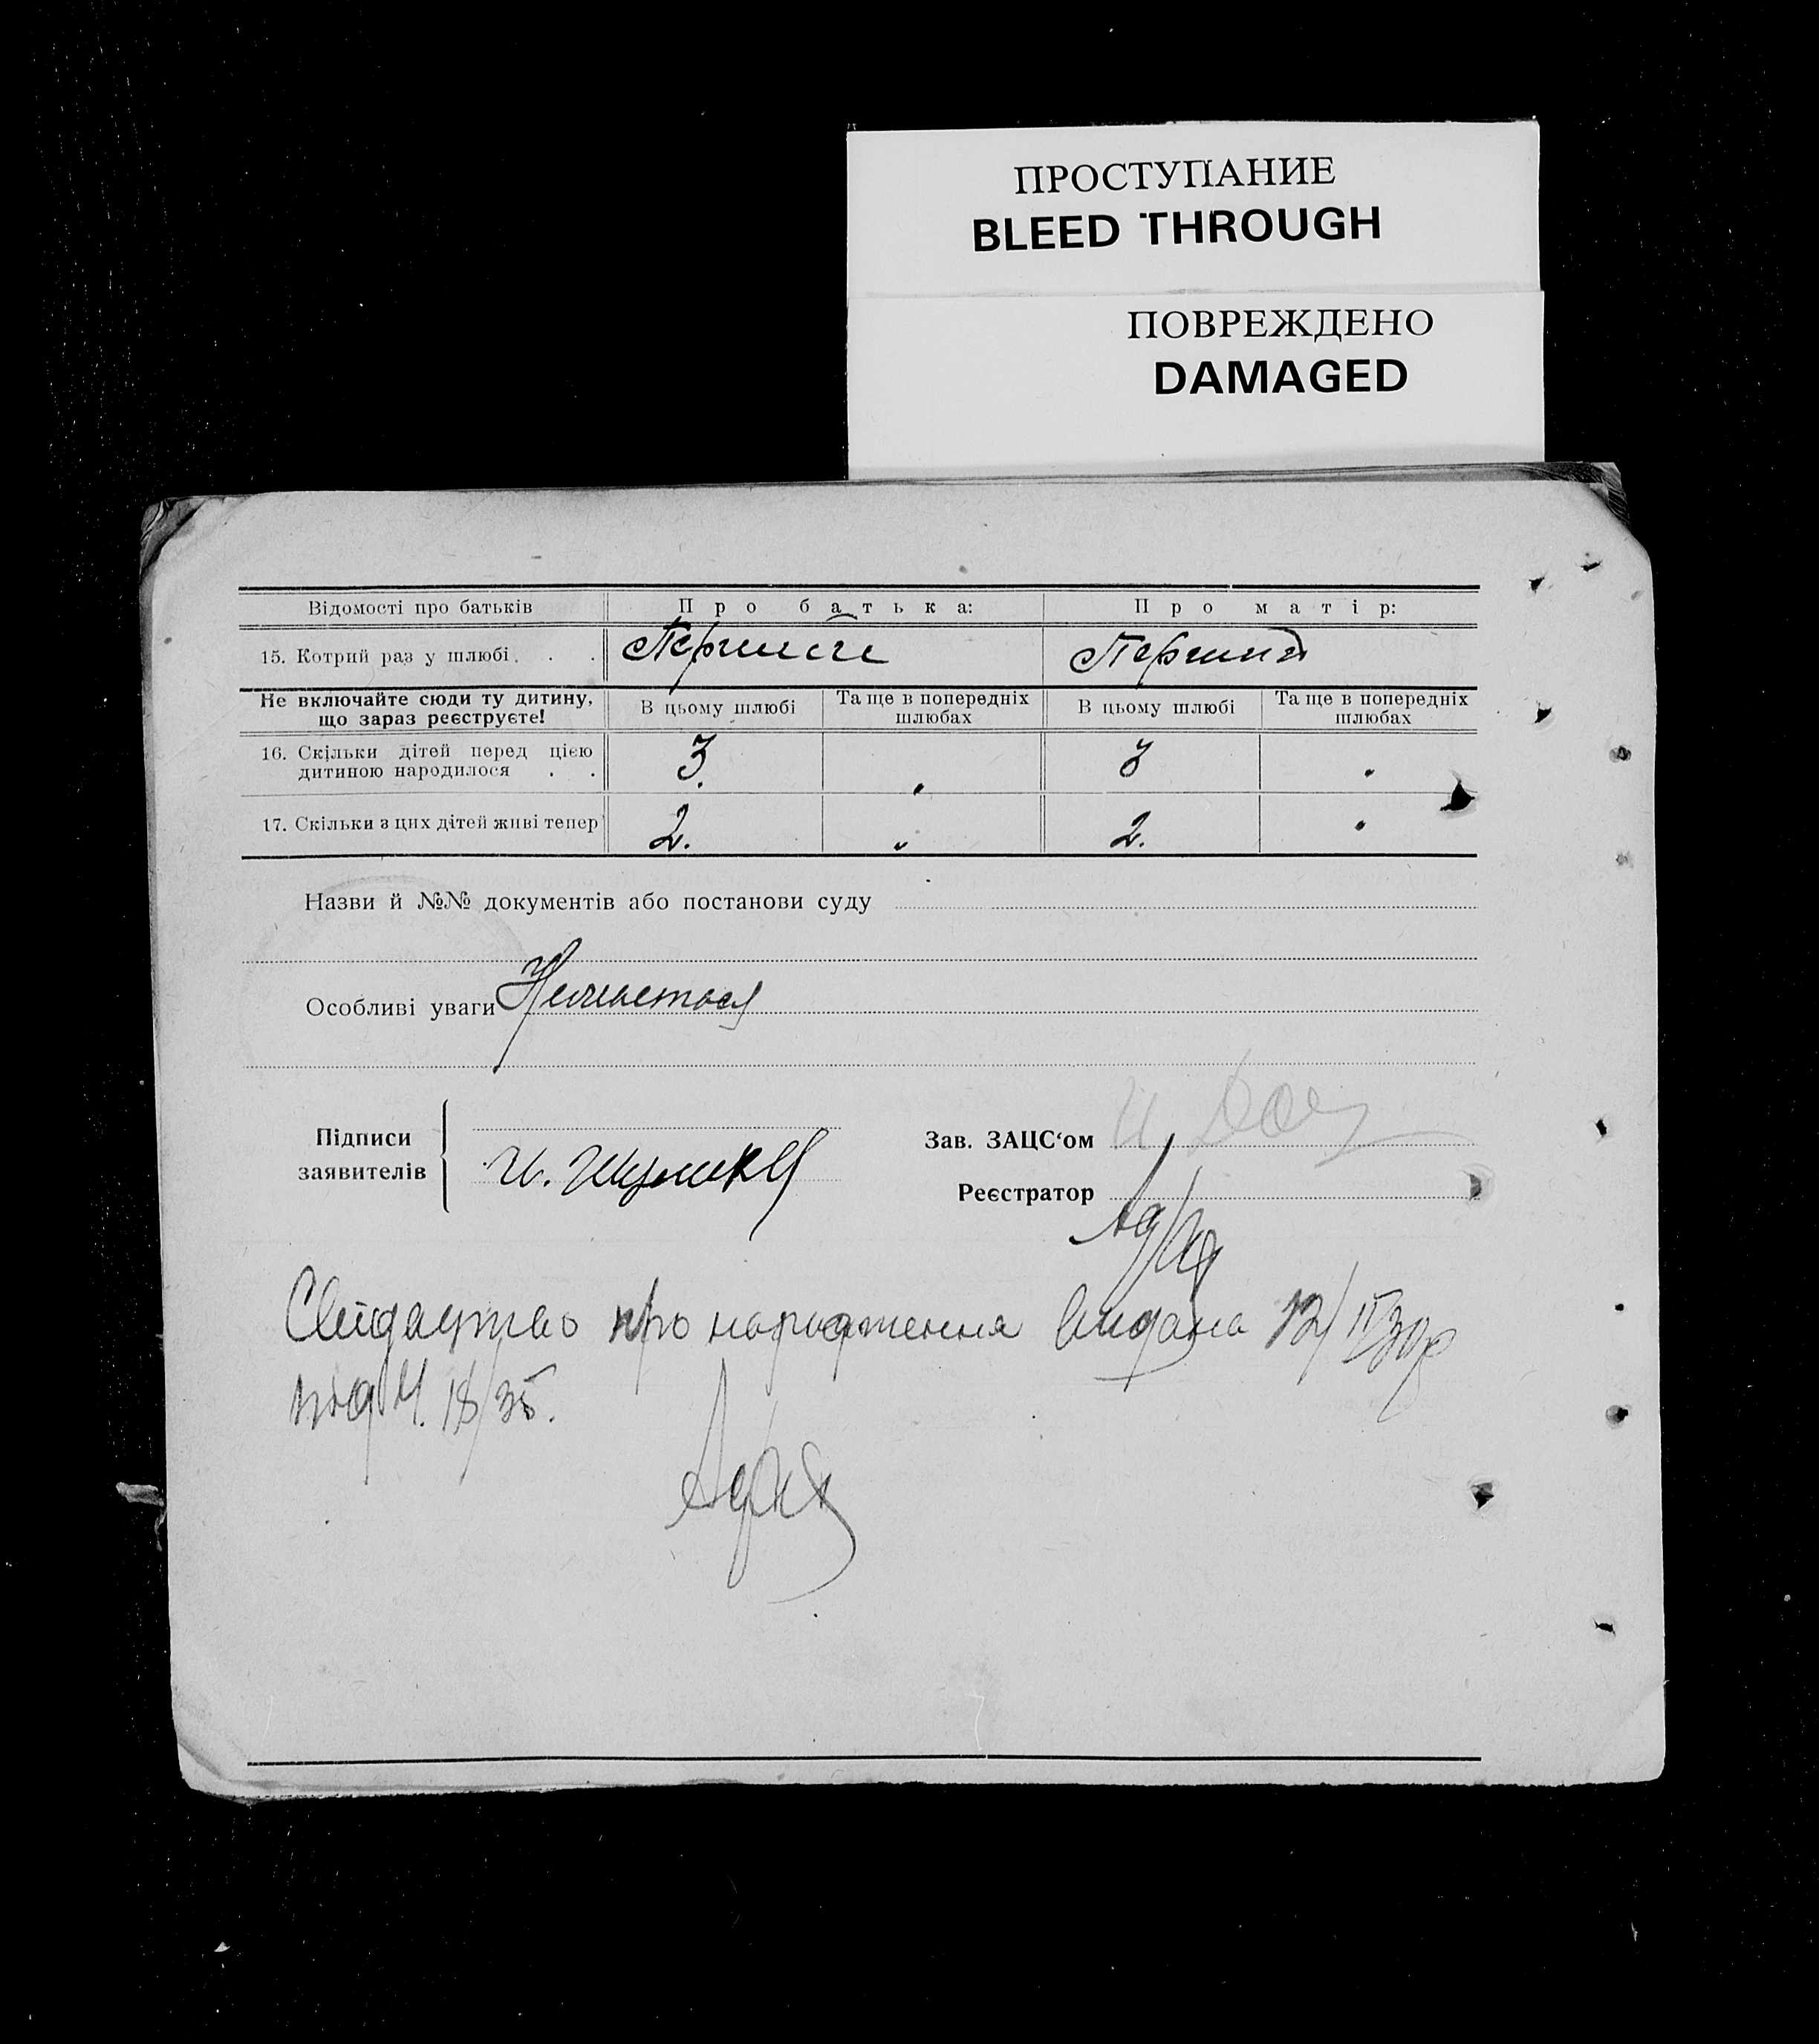 ПРОСТУПАНИЕ
BLEED THROUGH
ПОВРЕЖДЕНО
DAMAGED
Відомості про батьків Про батька: Про матір:
15. Котрий раз у шлюбі . . . Перший Перший
Не включайте сюди ту дитину, що зараз реєструєте! В цьому шлюбі Та ще в попередніх шлюбах В цьому шлюбі Та ще в попередніх шлюбах
16. Скільки дітей перед цією
дитиною народилося . . 3. 3
17. Скільки з цих дітей живі тепер 2. 2.
Назви й №№ документів або постанови суду
Особливі уваги
Підписи
заявителів
Зав. ЗАЦС‘ом
Реєстратор
про народження видана 12/
під Ч. 18/35.